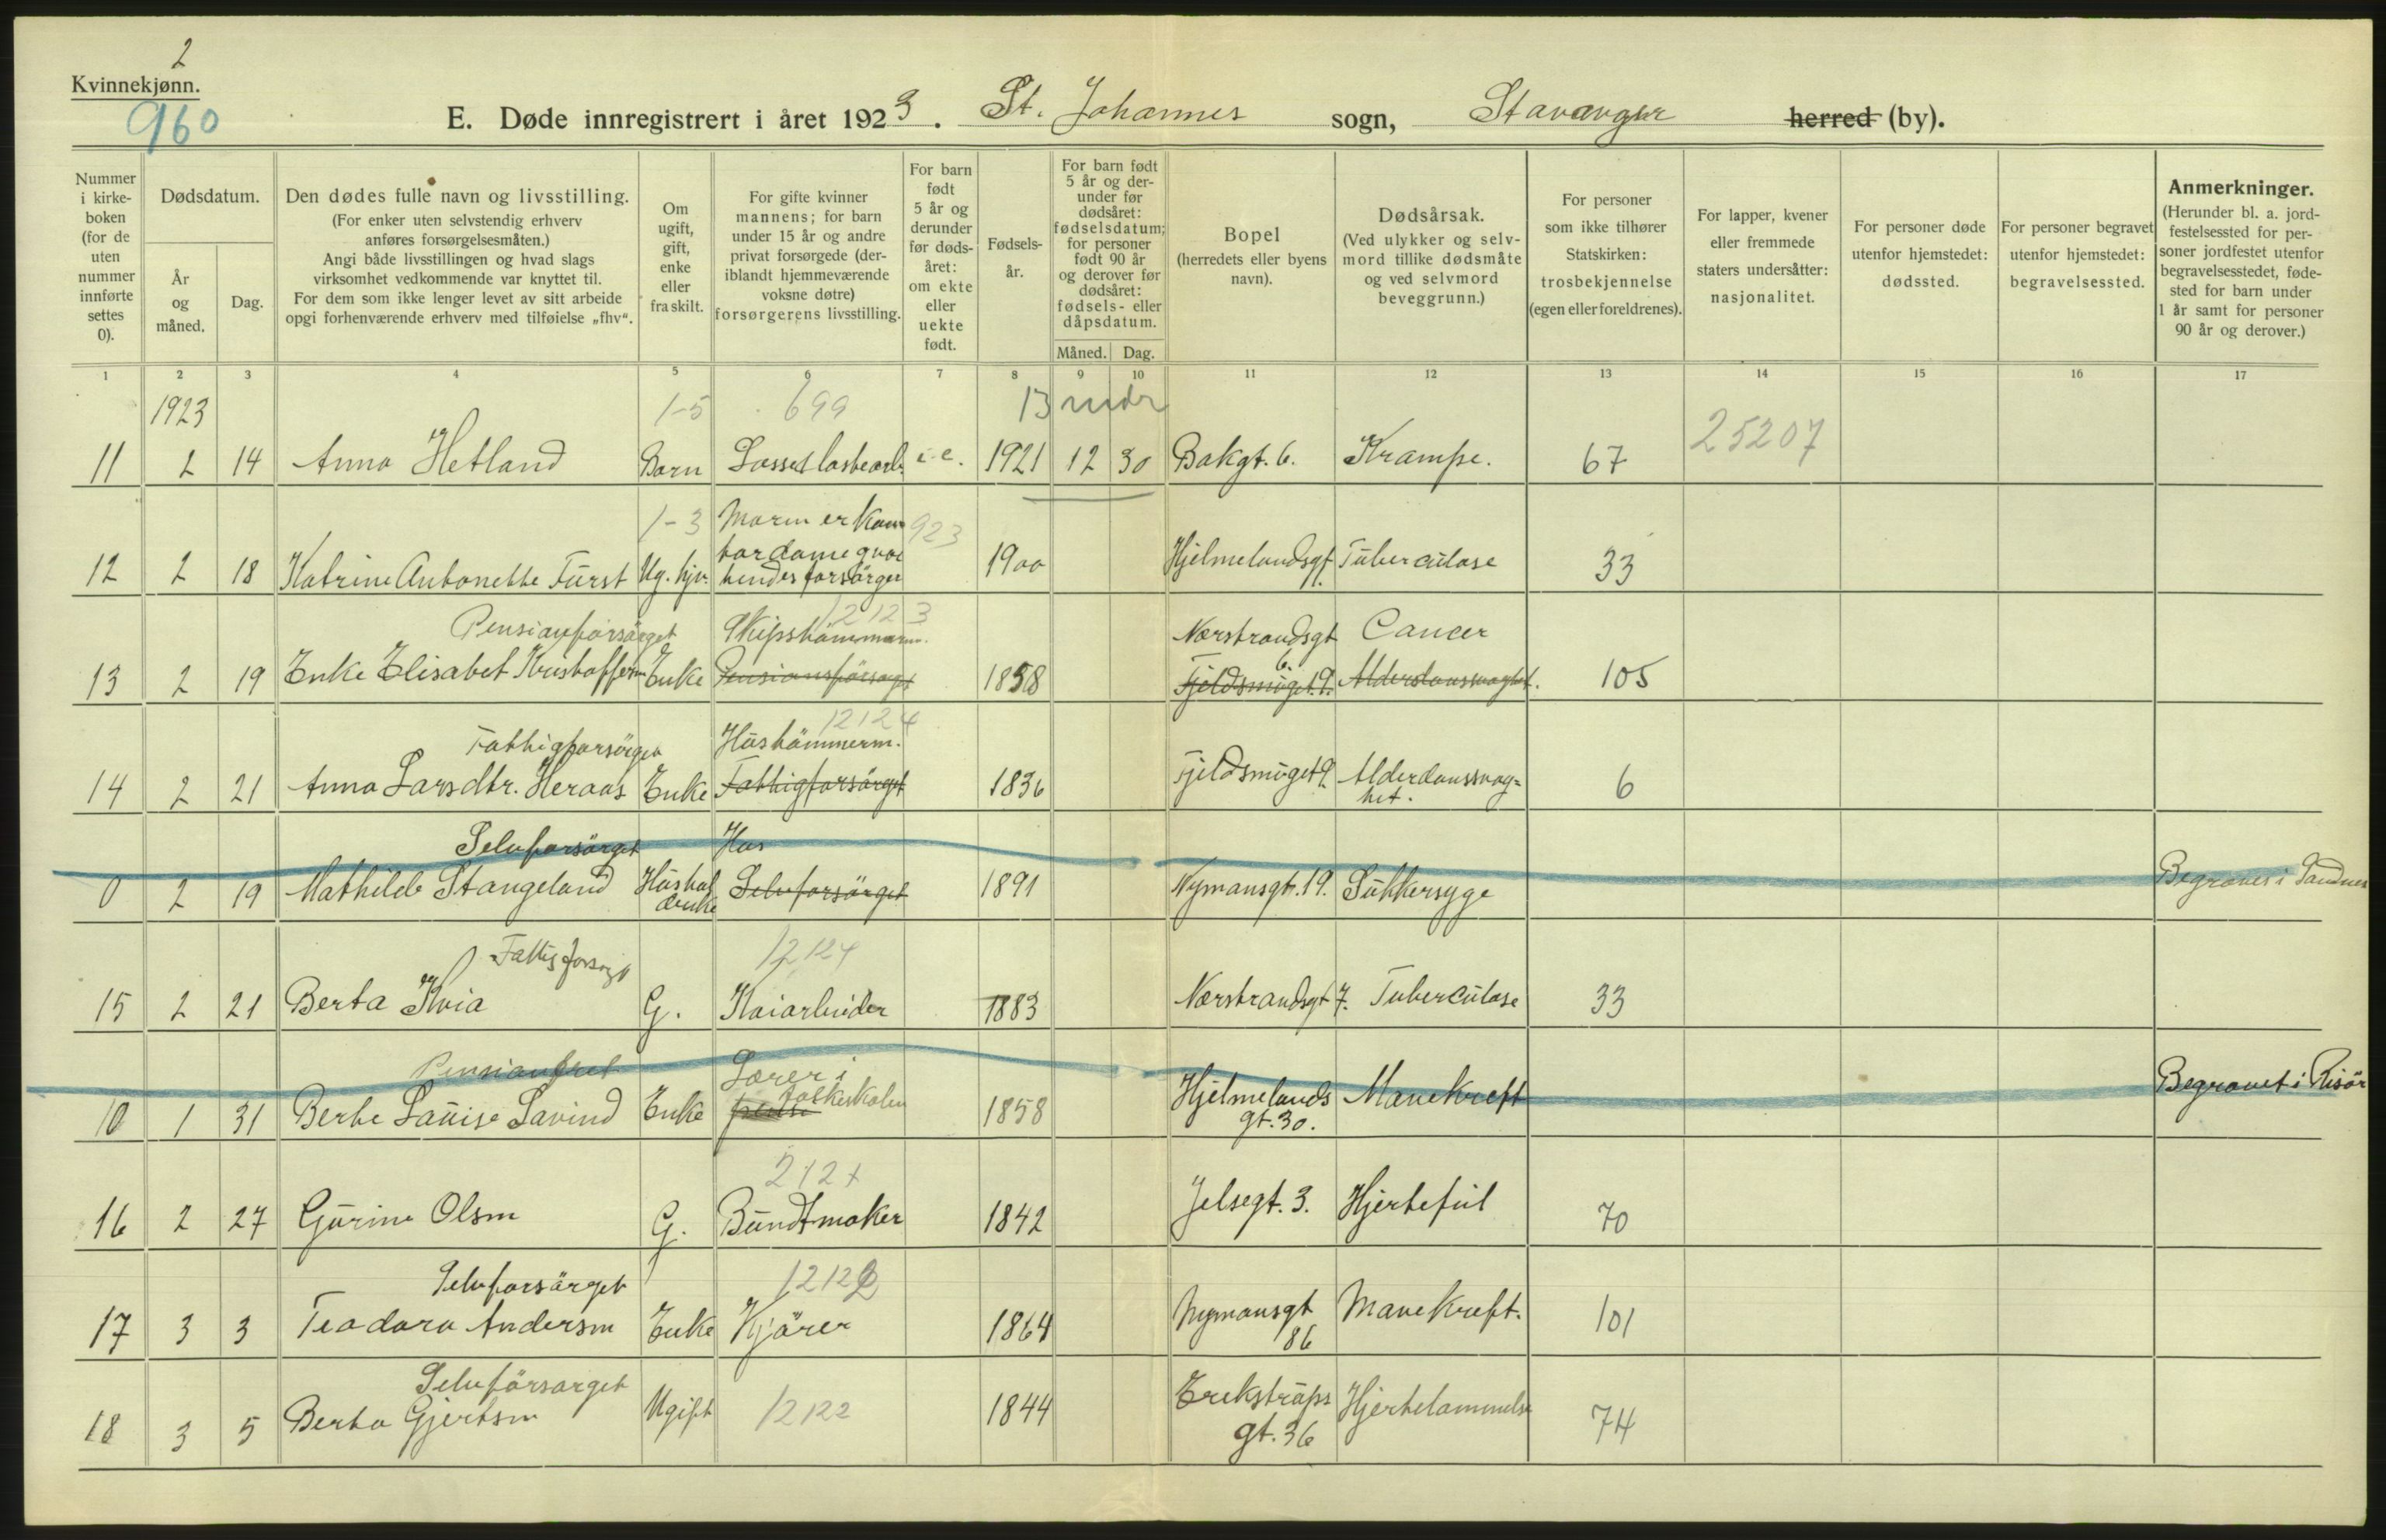 2
Kvinnekjønn.
960
E. Døde innregistrert i året 1923. St. Johannes sogn, Stavanger herred (by).
Nummer i kirke-boken (for de uten nummer innførte settes 0).
Dødsdatum.
År og måned.
Dag.
Den dødes fulle navn og livsstilling.
(For enker uten selvstendig erhverv anføres forsørgelsesmåten.)
Angi både livsstillingen og hvad slags virksomhet vedkommende var knyttet til.
For dem som ikke lenger levet av sitt arbeide opgi forhenværende erhverv med tilføielse „fhv“.
Om ugift, gift, enke eller fraskilt.
For gifte kvinner mannens; for barn under 15 år og andre privat forsørgede (der-iblandt hjemmeværende voksne døtre) forsørgerens livsstilling.
For barn født 5 år og derunder før døds-året: om ekte eller uekte født.
Fødsels-år.
For barn født 5 år og der-under før dødsåret: fødselsdatum; for personer født 90 år og derover før dødsåret: fødsels- eller dåpsdatum.
Måned. Dag.
Bopel
(herredets eller byens navn).
Dødsårsak.
(Ved ulykker og selv-mord tillike dødsmåte og ved selvmord beveggrunn.)
For personer som ikke tilhører Statskirken: trosbekjennelse (egen eller foreldrenes).
For lapper, kvener eller fremmede staters undersåtter: nasjonalitet.
For personer døde utenfor hjemstedet: dødssted.
For personer begravet utenfor hjemstedet: begravelsessted.
Anmerkninger.
(Herunder bl. a. jord-festelsessted for per-soner jordfestet utenfor begravelsesstedet, føde-sted for barn under 1 år samt for personer 90 år og derover.)
1 2 3 4 5 6 7 8 9 10 11 12 13 14 15 16 17
1923 1-5 699 13 mdr 25207
11 2 14 Anna Hetland Barn e. 1921 12 30 Bakgt. 6. Krampe. 67
1-3 923
12 2 18 Katrine Antonette Fürst Ug. hjv. hendes forsörger 1900 Hjelmelandsgt. Tuberculose 33
Pensionsforsörget 12123 Norstrandsgt 6 Cancer
13 2 19 Enke Elisabet Enke Pensionsforsörget 1858 Fjeldsmüget 9. Alderdomssvaghet. 105
Fattigforsörget Hüstömmerm. 12124
14 2 21 Anna Larsdtr. Heraas Enke Fattigforsörget 1836 Fjeldsmüget 9. Alderdomssvag=
het. 6
Selvforsörget Hus
0 2 19 Mathilde Stangeland Selvforsörget 1891 Nymansgt. 19. Sükkersyge Begravet i Sandnes
Fattigforsørgt 12124
15 2 21 Berta Kvia G. Kaiarbeider 1883 Norstrandsgt 7. Tuberculose 33
Lærer i
folkeskolen
10 1 31 Berte Laüise Lavind Enke 1858 Hjelmelands
gt. 30. Mavekreft Begravet i Risör
16 2 27 Gürine Olsen G. Bündtmaker 1842 Jelsegt. 3. Hjertefeil 70
Selvforsörget
17 3 3 Teodora Andersen Enke Kjörer 1864 Nymansgt
86 Mavekreft. 101
Selvforsörget
18 3 5 Berta Gjertsen Ugift 12122 1844 gt. 36 Hjertelammelse 74